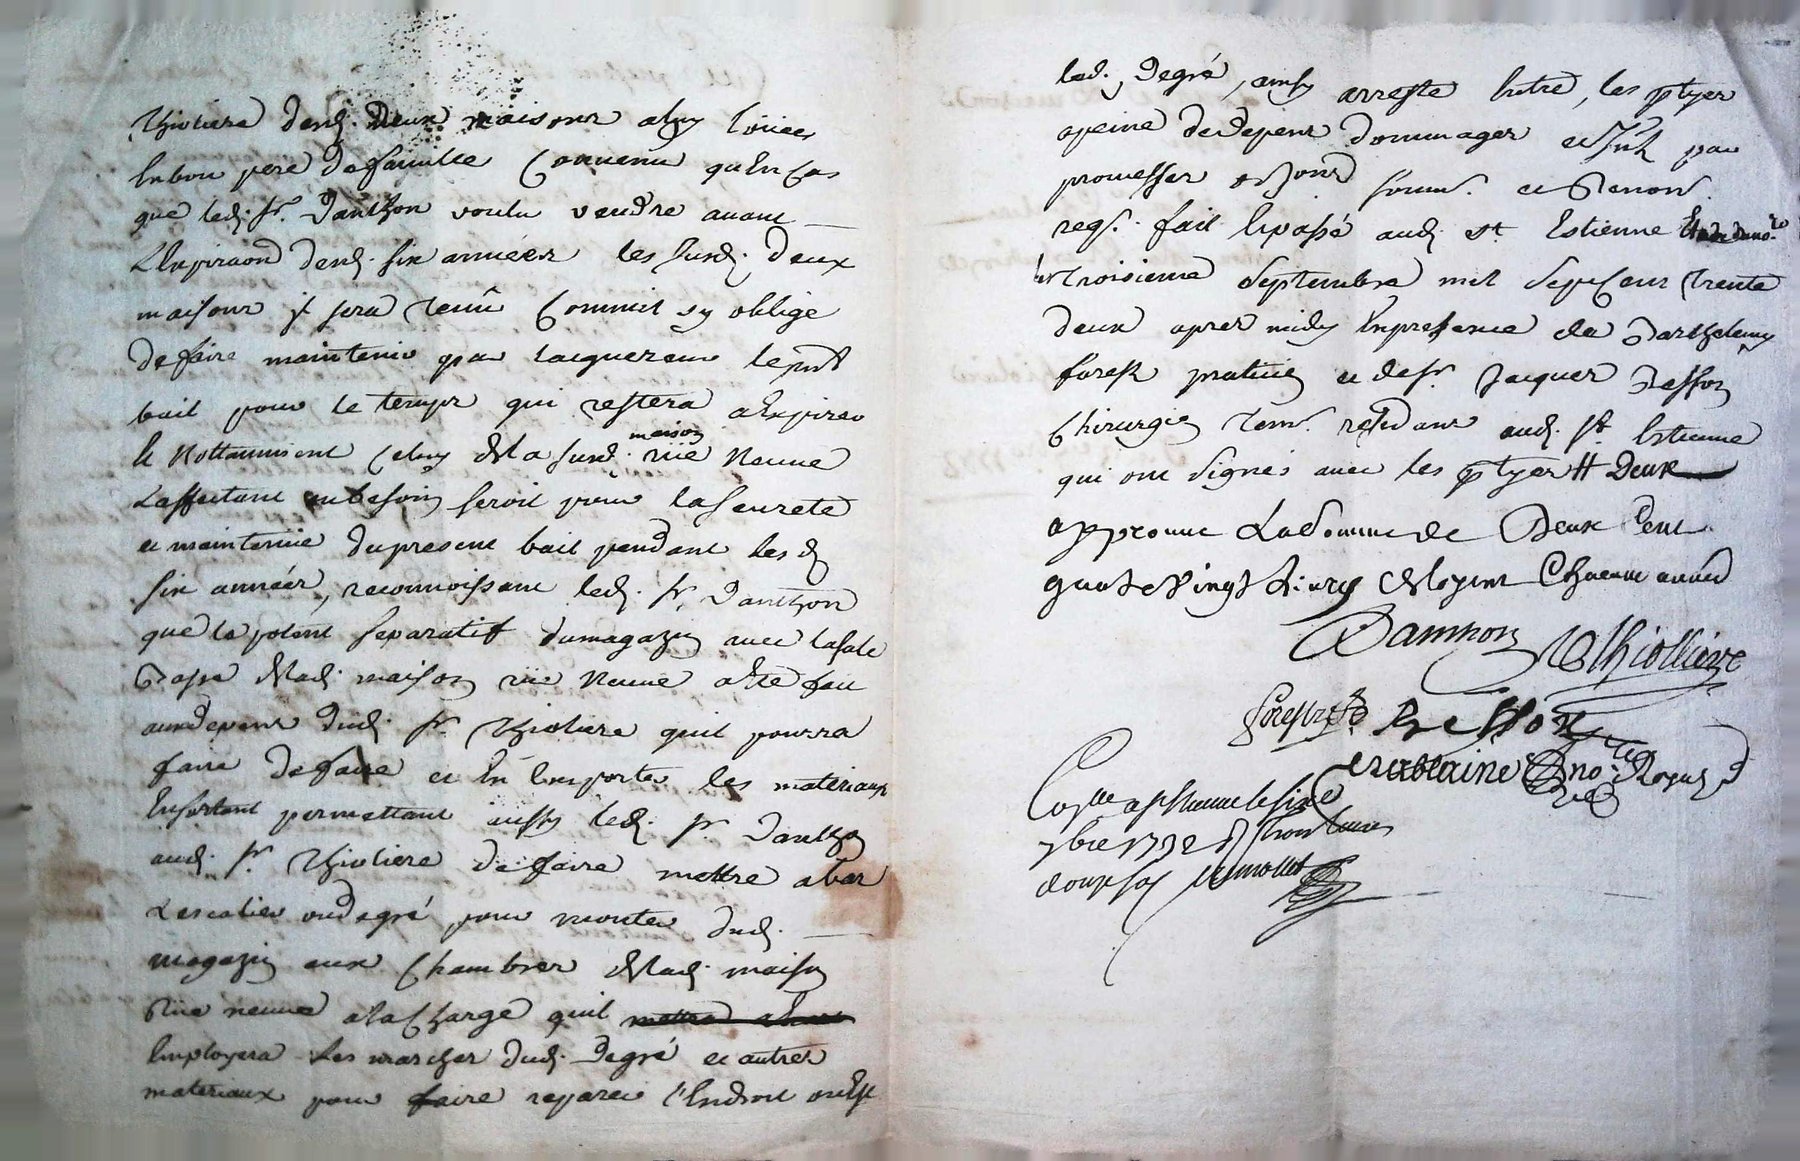 Thioliere desd. deux maisons aluy loüées
En bon pere de famille Convenu qu'En Cas
que led. sr. Danthon voulu vendre avant
L'Expiraon desd. six années les susd. deux
maisons il sera tenû Comme il s'y oblige
de faire maintenir par lacquereur le pnt
bail pour le temps qui restera a Expirer
Et Nottamment Celuy de la susd. maison rüe Neuve
L'affectant au besoin seroit pour la seureté
et maintenüe du present bail pendant lesd.
six années, reconnoissant led. sr. Danthon
que le potent separatif du magazin avec la sale
Basse de lad. maison rüe Neuve a Eté fait
aux depens dud. sr. Thioliere qu'il pourra
faire defaire et En Emporter les materiaux
En sortant permettant aussy led. sr. Danthon
aud. sr. Thioliere de faire mettre a bas
L'escalier ou degré pour monter dud.
magazin aux Chambres de lad. maison
Rüe neuve a la Charge quil mettra a bas
Employera les marches dud. degré et autres
materiaux pour faire reparer l'Endroit ou Est
led. degré, ainsy arresté Entre les ptyes
a peine de depens dommages et Inth par
promesses oblons soum. et Renon.
reqs. fait Et passé aud. st Estienne Etude du no.re
le troisieme septembre mil sept Cent trente
deux apres midy En presence de Barthelemy
forest praticien et de sr. Jacques Besson
Chirurgien tem. residans aud. st. Estienne
qui ont signés avec les ptyes # Deux
approuve La Somme de Deux Cent
quatevingt Livres de loyers Chacune année
Danthon Thiolliere
forest Besson
Crablaine no.re Royal
7bre 1732